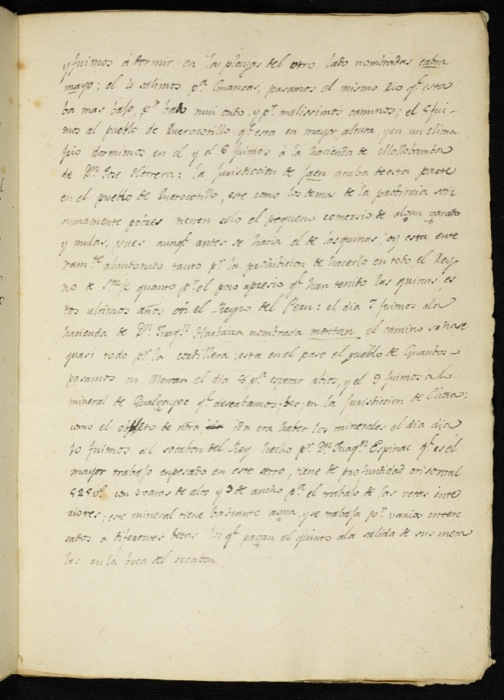 y fuimos á dormir en las playas del otro lado nombradas cabra
mayo; el 4 salimos p.r Guancas, pasamos el mismo Rio q.e esta
ba mas bajo, p.r bado mui ondo, y p.r malissimos caminos; el 5 fui
mos al pueblo de Querocotillo q.e esta en mayor altura, y en un clima
frio dormimos en el, y el 6 fuimos á la hacienda de Mollobamba
de D.n Jose Herrera: la Jurisdiccion de Jaen acaba de esta parte
en el pueblo de Querocotillo, este como los demas de la provincia son
sumamente pobres tienen solo el pequeño comersio de algun
y mulas, pues aunq.e antes se hacia el de las quinas, oy esta ente
ram.te abandonado tanto p.r la prohibicion de hacerlo en todo el Rey
no de cuanto p.r el poco apresio q.e han tenido las quinas, es
tos ultimos años en el Reyno del Peru: el dia 7 fuimos ala
hacienda de D.n Juaq.n nombrada montan el camino se hase
quasi todo p.r la cordillera; esta en el paso el pueblo de
pasamos en Montan el dia 8 p.r esperar abios, y el 9 fuimos al
mineral de Gualgayoc q.e deseabamos ber, en la Jurisdiccion de Chota:
como el de ntra ida era haber los minerales el dia
10 fuimos al socabon del Rey hecho p.r D.n Juaq.n Espinal q.e es el
mayor trabajo enpesado en este serro, tiene de profuntidad orisontal
525 con 3 varas de alto y 3 de ancho p.r el trabajo de las vetas inte
riores; este mineral tiene bastante agua, y se trabaja p.r varios intere
sados, a diferentes betas los q.e pagan el quinto ala salida de sus meta
les en la boca del socabon